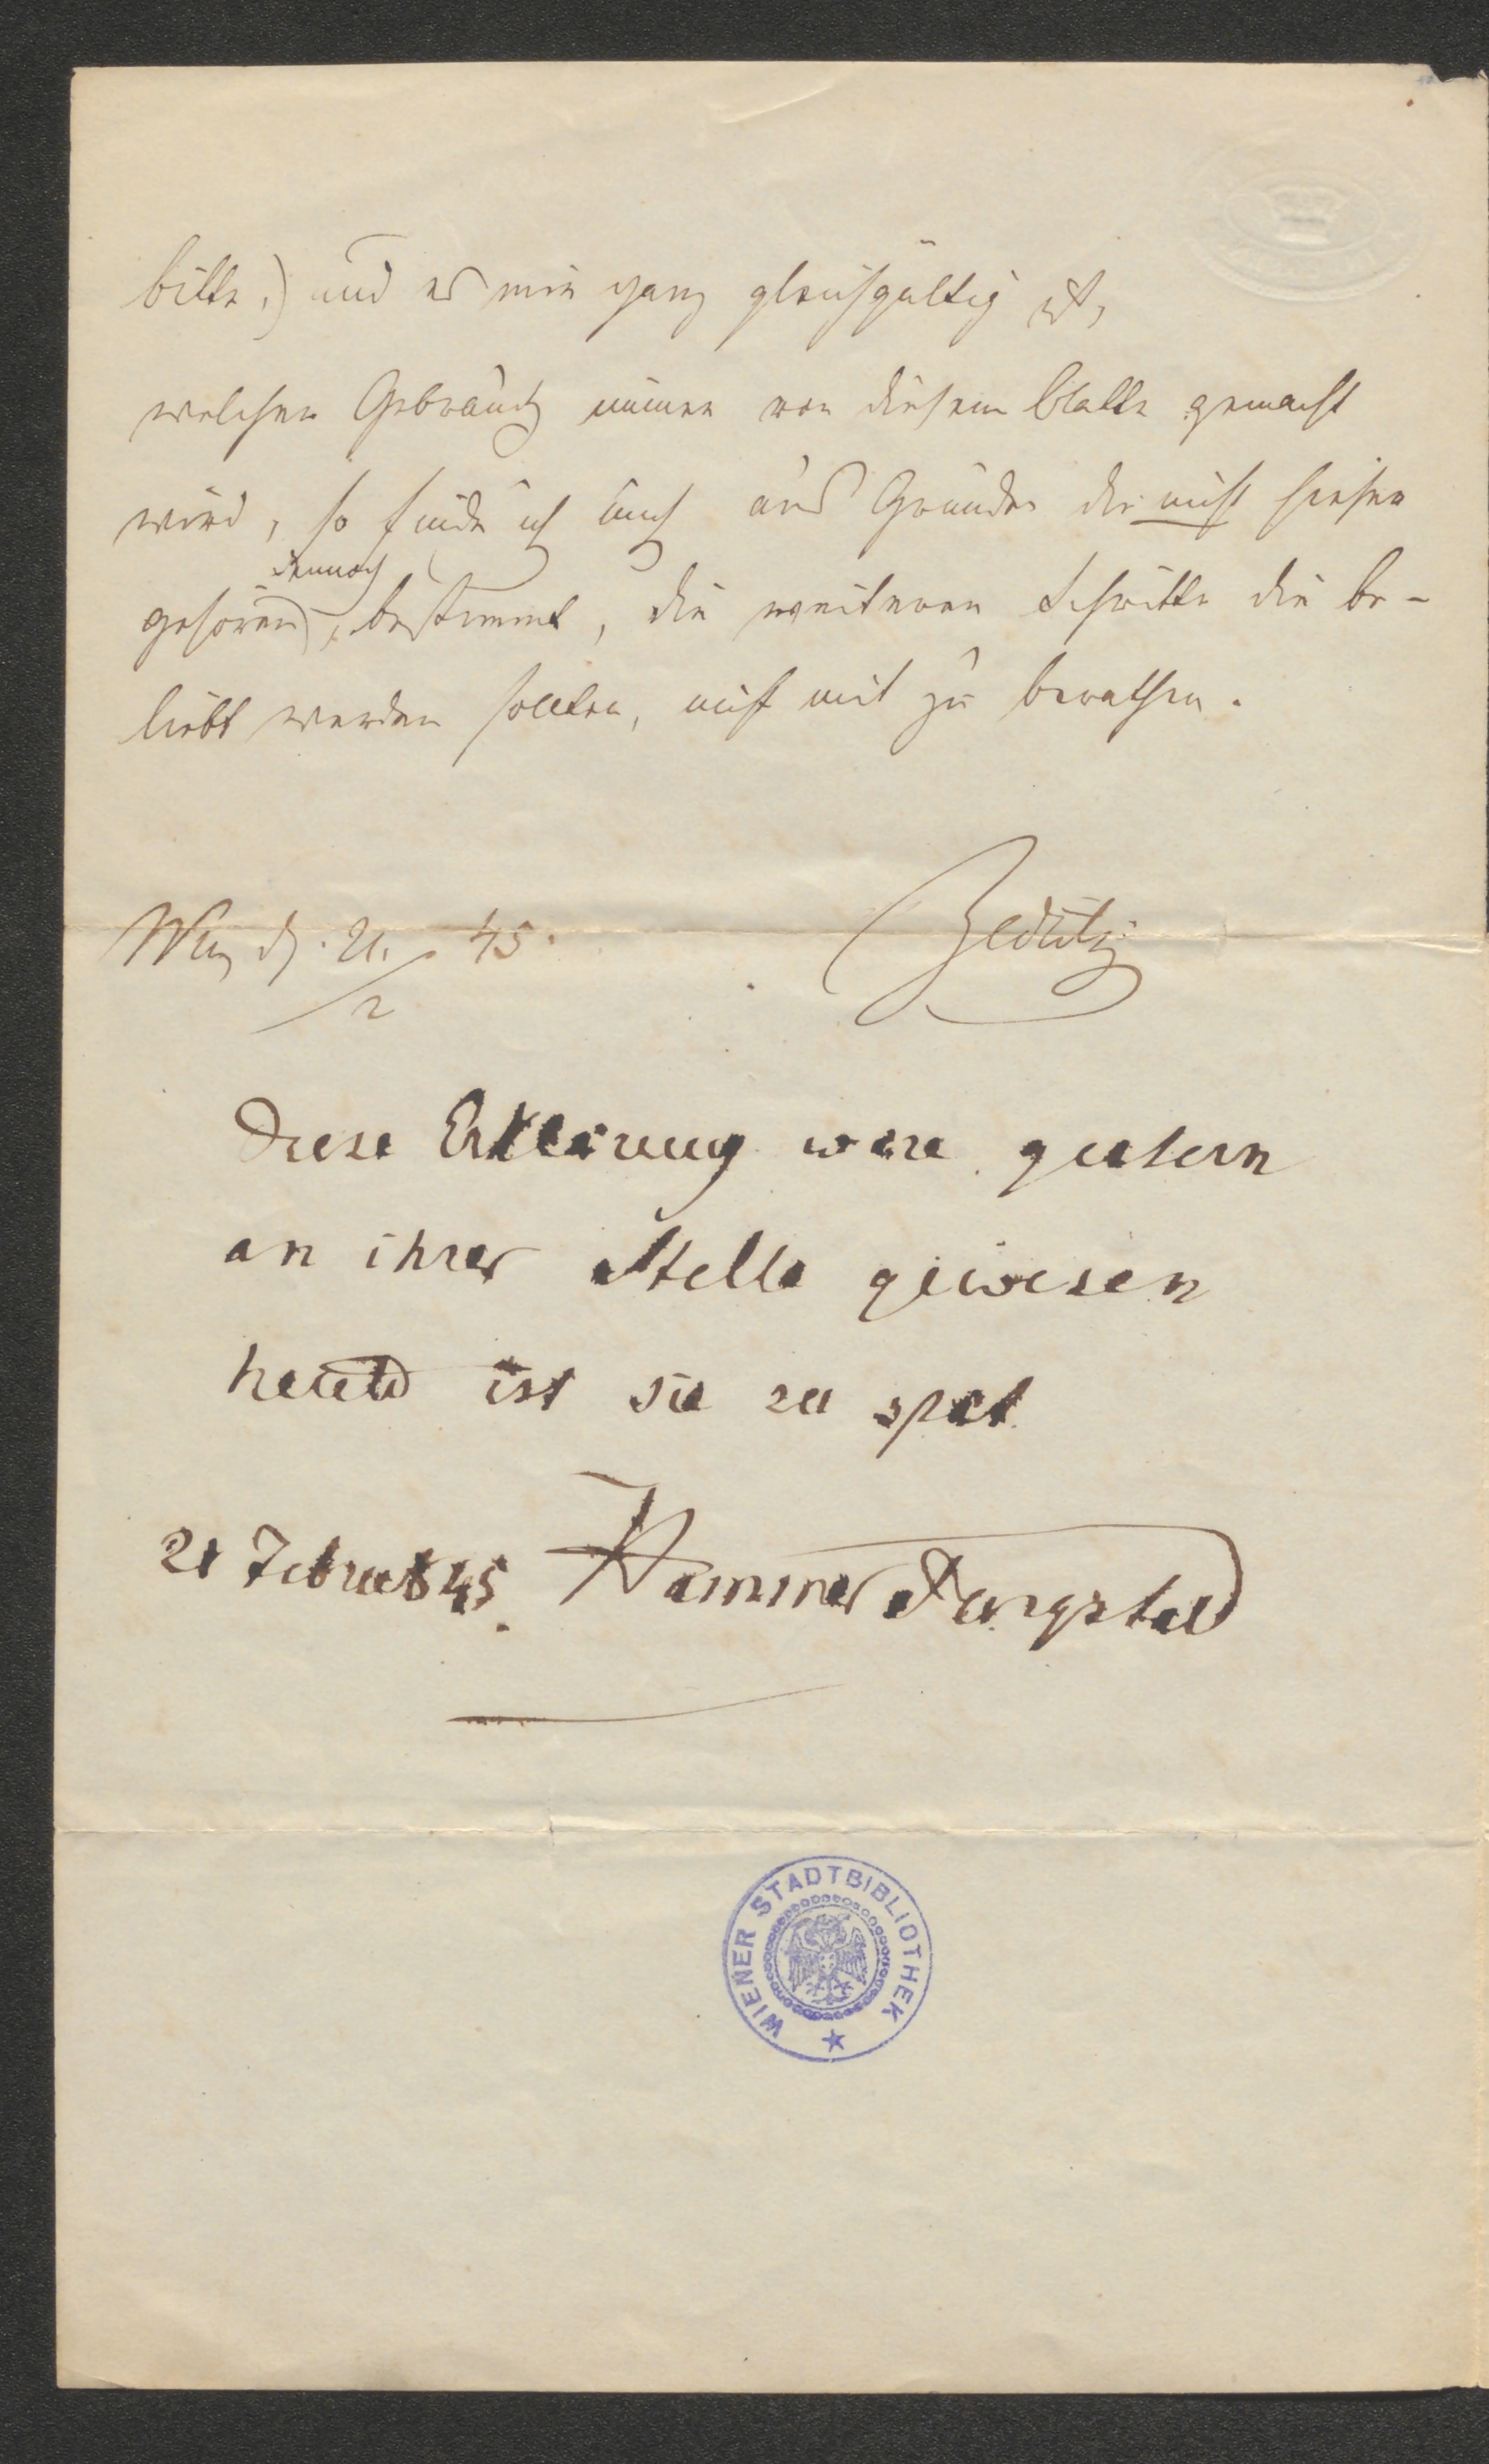 bitte,) und es mir ganz gleichgültig ist,
welcher Gebrauch immer von diesem Blatte gemacht
wird, so finde ich mich aus Gründen die nicht hieher
dennoch
gehören, bestimmt, die weiteren Schritte die be-
liebt werden sollten, nicht mit zu berathen.
Wien d. 21. / 2 45.
Zedlitz
Diese Erklärung wäre gestern
an ihrer Stelle gewesen
heute ist sie zu spät
21 Febru 845. Hammer Purgstall
WIENER STADTBIBLIOTHEK